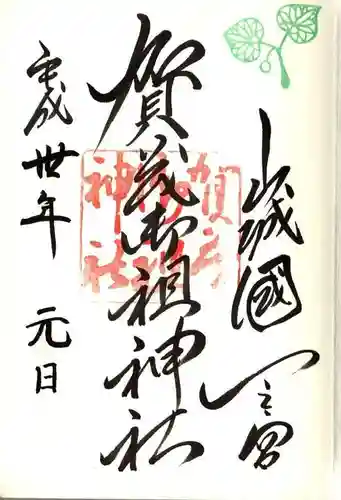 山城國一之宮
賀茂御祖神社
平成卅年 元日
賀茂御祖神社